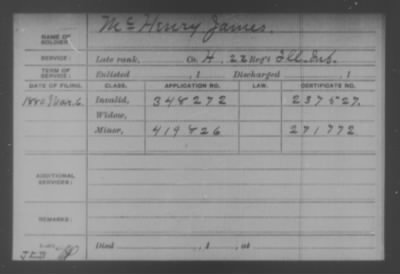 NAME OF SOLDIER: McHenry James.
SERVICE: Late rank, Co. H, 22 Reg't Ill. Inf.
TERM OF SERVICE: Enlisted , 1 Discharged , 1
DATE OF FILING. CLASS. APPLICATION NO. LAW. CERTIFICATE NO.
1880 Mar. 6. Invalid, 348272 237527.
Widow,
Minor, 419826 271772
ADDITIONAL SERVICES:
REMARKS:
Died , 1 , at